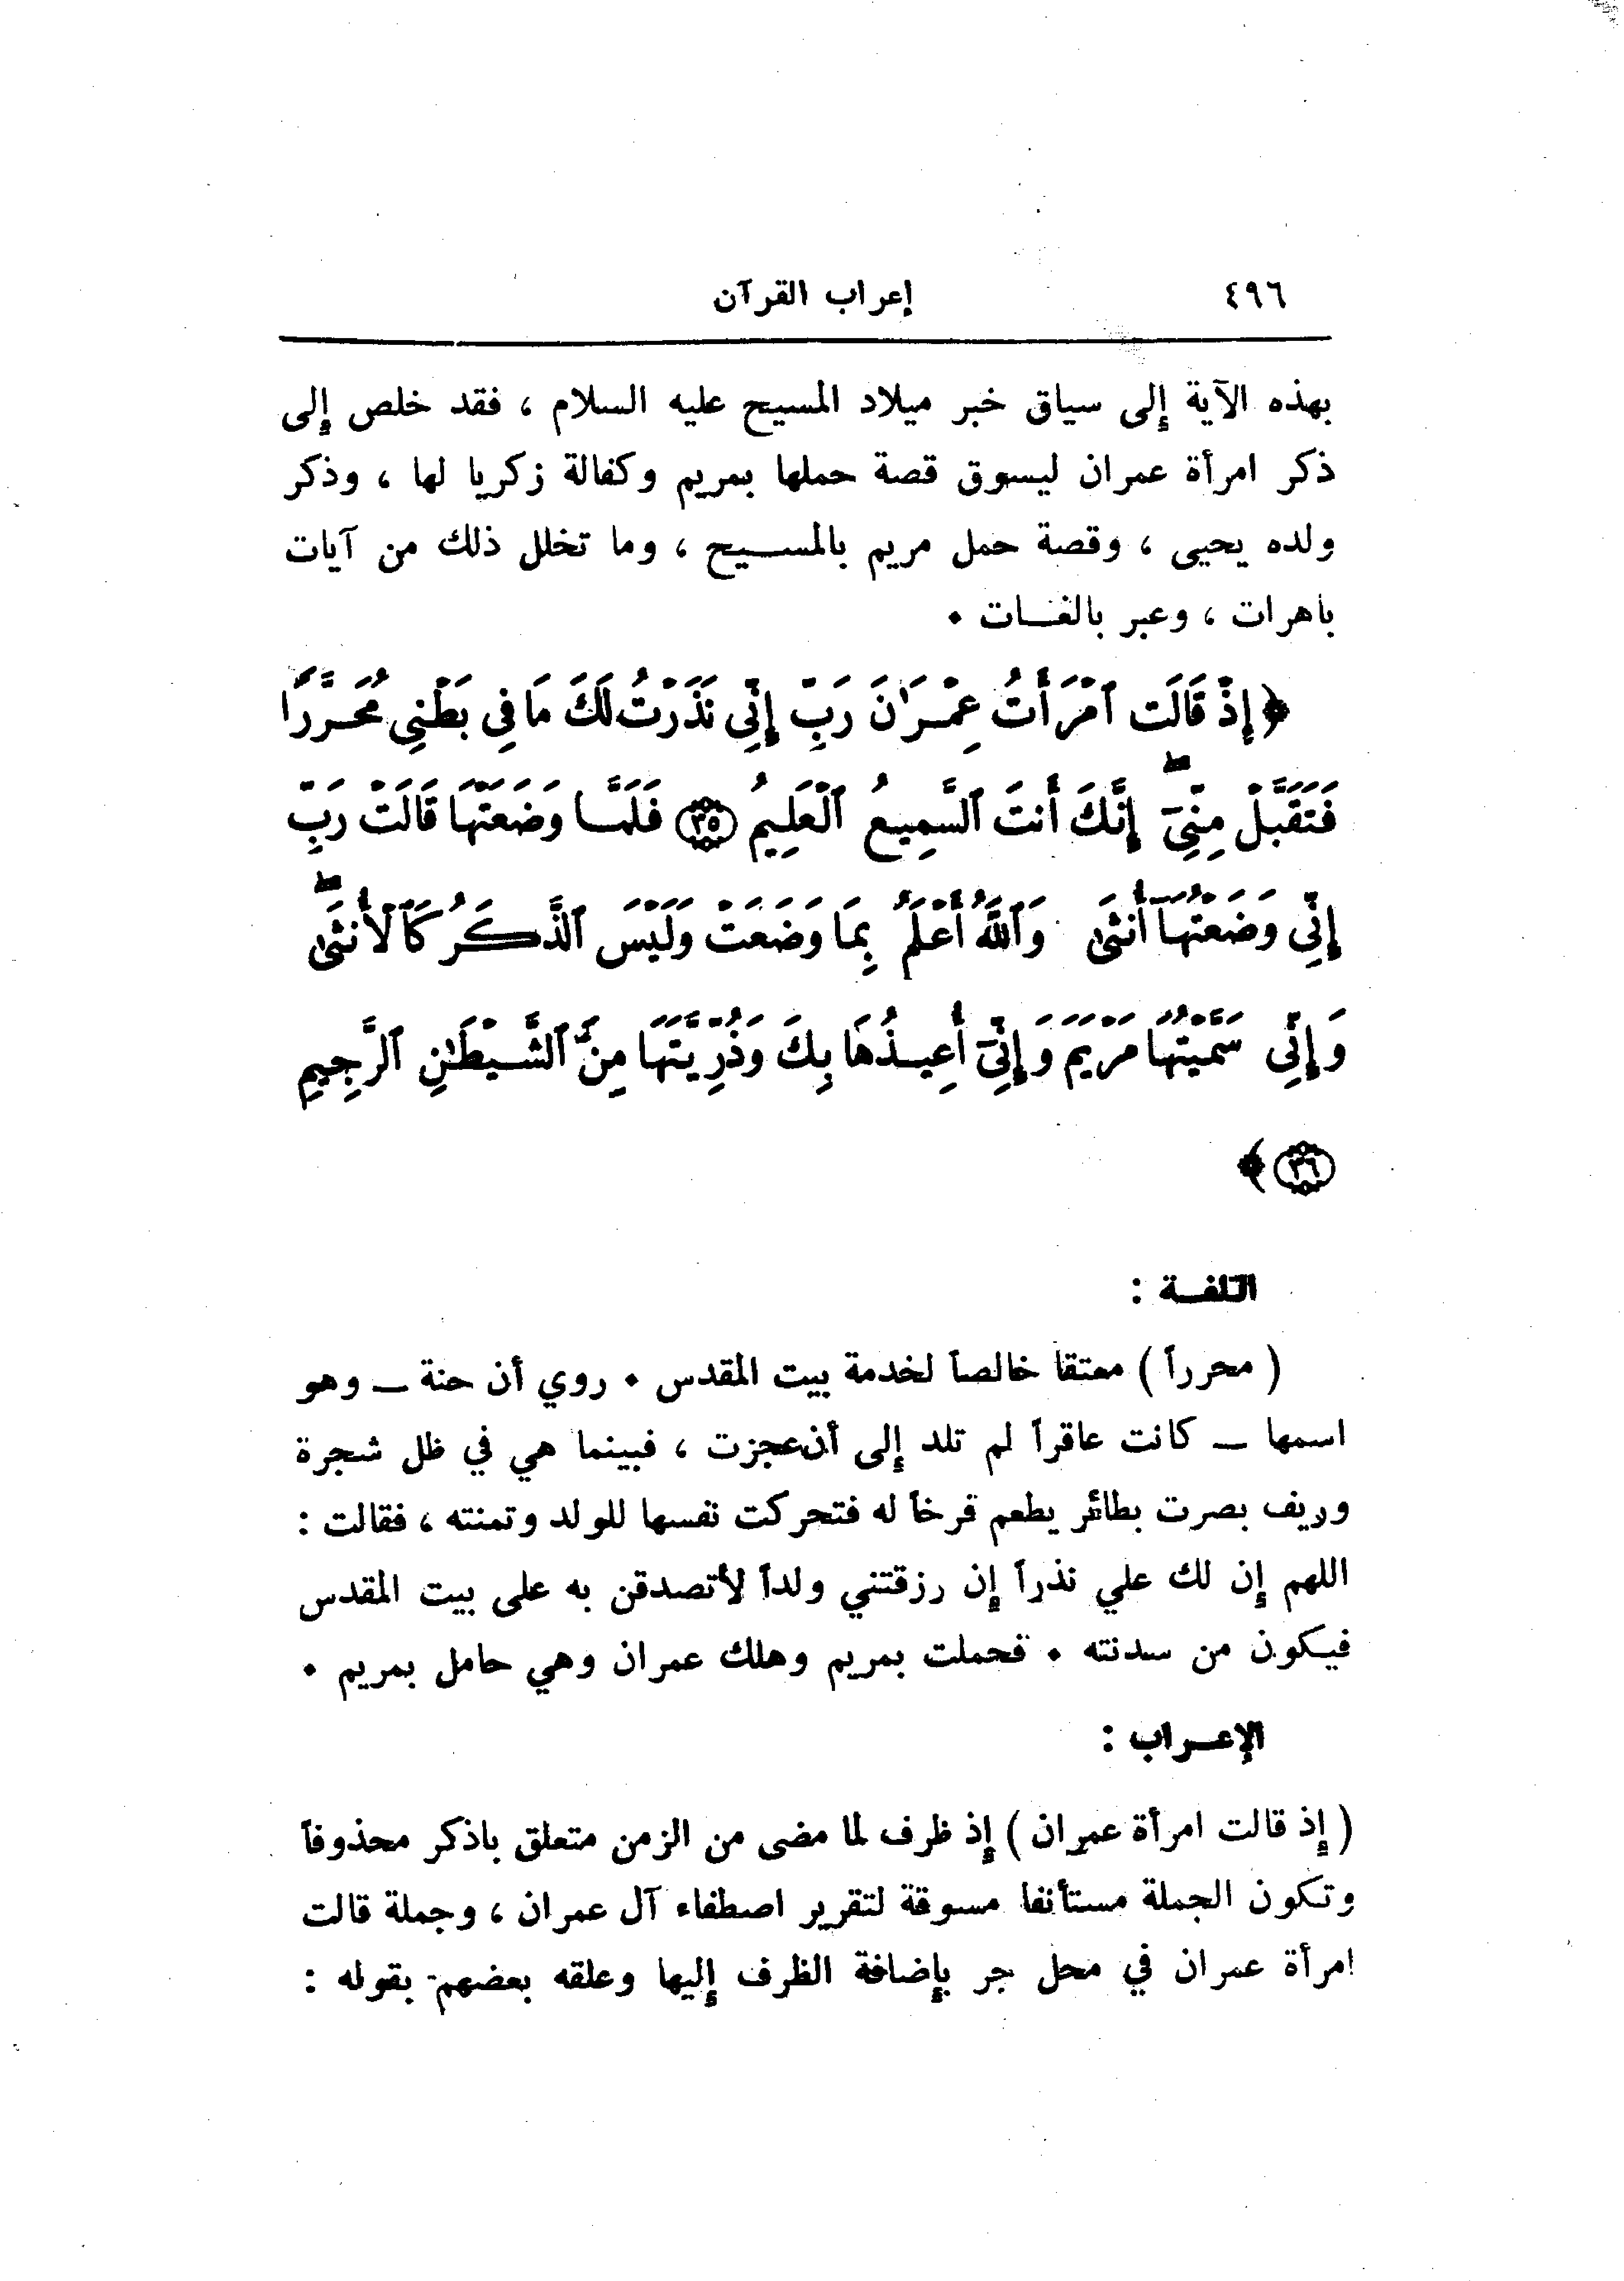 ٤٩٦
إعراب القرآن
بهذه الآية إلى سياق خبر ميلاد المسيح عليه السلام ، فقد خلص إلى
ذكر امرأة عمران ليسوق قصة حملها بمريم وكفالة زكريا لها ، وذكر
ولده يحيى ، وقصة حمل مريم بالمسـيح ، وما تخلل ذلك من آيات
باهرات ، وعبر بالغـات .
﴿إِذْ قَالَتِ ٱمْرَأَتُ عِمْرَٰنَ رَبِّ إِنِّى نَذَرْتُ لَكَ مَا فِى بَطْنِى مُحَرَّرًا
فَتَقَبَّلْ مِنِّىٓۖ إِنَّكَ أَنتَ ٱلسَّمِيعُ ٱلْعَلِيمُ ٣٥ فَلَمَّا وَضَعَتْهَا قَالَتْ رَبِّ
إِنِّى وَضَعْتُهَآ أُنثَىٰ وَٱللَّهُ أَعْلَمُ بِمَا وَضَعَتْ وَلَيْسَ ٱلذَّكَرُ كَٱلْأُنثَىٰۖ
وَإِنِّى سَمَّيْتُهَا مَرْيَمَ وَإِنِّىٓ أُعِيذُهَا بِكَ وَذُرِّيَّتَهَا مِنَ ٱلشَّيْطَٰنِ ٱلرَّجِيمِ
٣٦ ﴾
اللغـة :
( محرراً ) معتقاً خالصاً لخدمة بيت المقدس . روي أن حنة ــ وهو
اسمها ــ كانت عاقراً لم تلد إلى أن عجزت ، فبينما هي في ظل شجرة
وريف بصرت بطائر يطعم فرخاً له فتحركت نفسها للولد وتمنته ، فقالت :
اللهم إن لك علي نذراً إن رزقتني ولداً لأتصدقن به على بيت المقدس
فيكون من سدنته . فحملت بمريم وهلك عمران وهي حامل بمريم .
الإعـراب :
( إذ قالت امرأة عمران ) إذ ظرف لما مضى من الزمن متعلق باذكر محذوفاً
وتكون الجملة مستأنفا مسوقة لتقرير اصطفاء آل عمران ، وجملة قالت
امرأة عمران في محل جر بإضافة الظرف إليها وعلقه بعضهم بقوله :